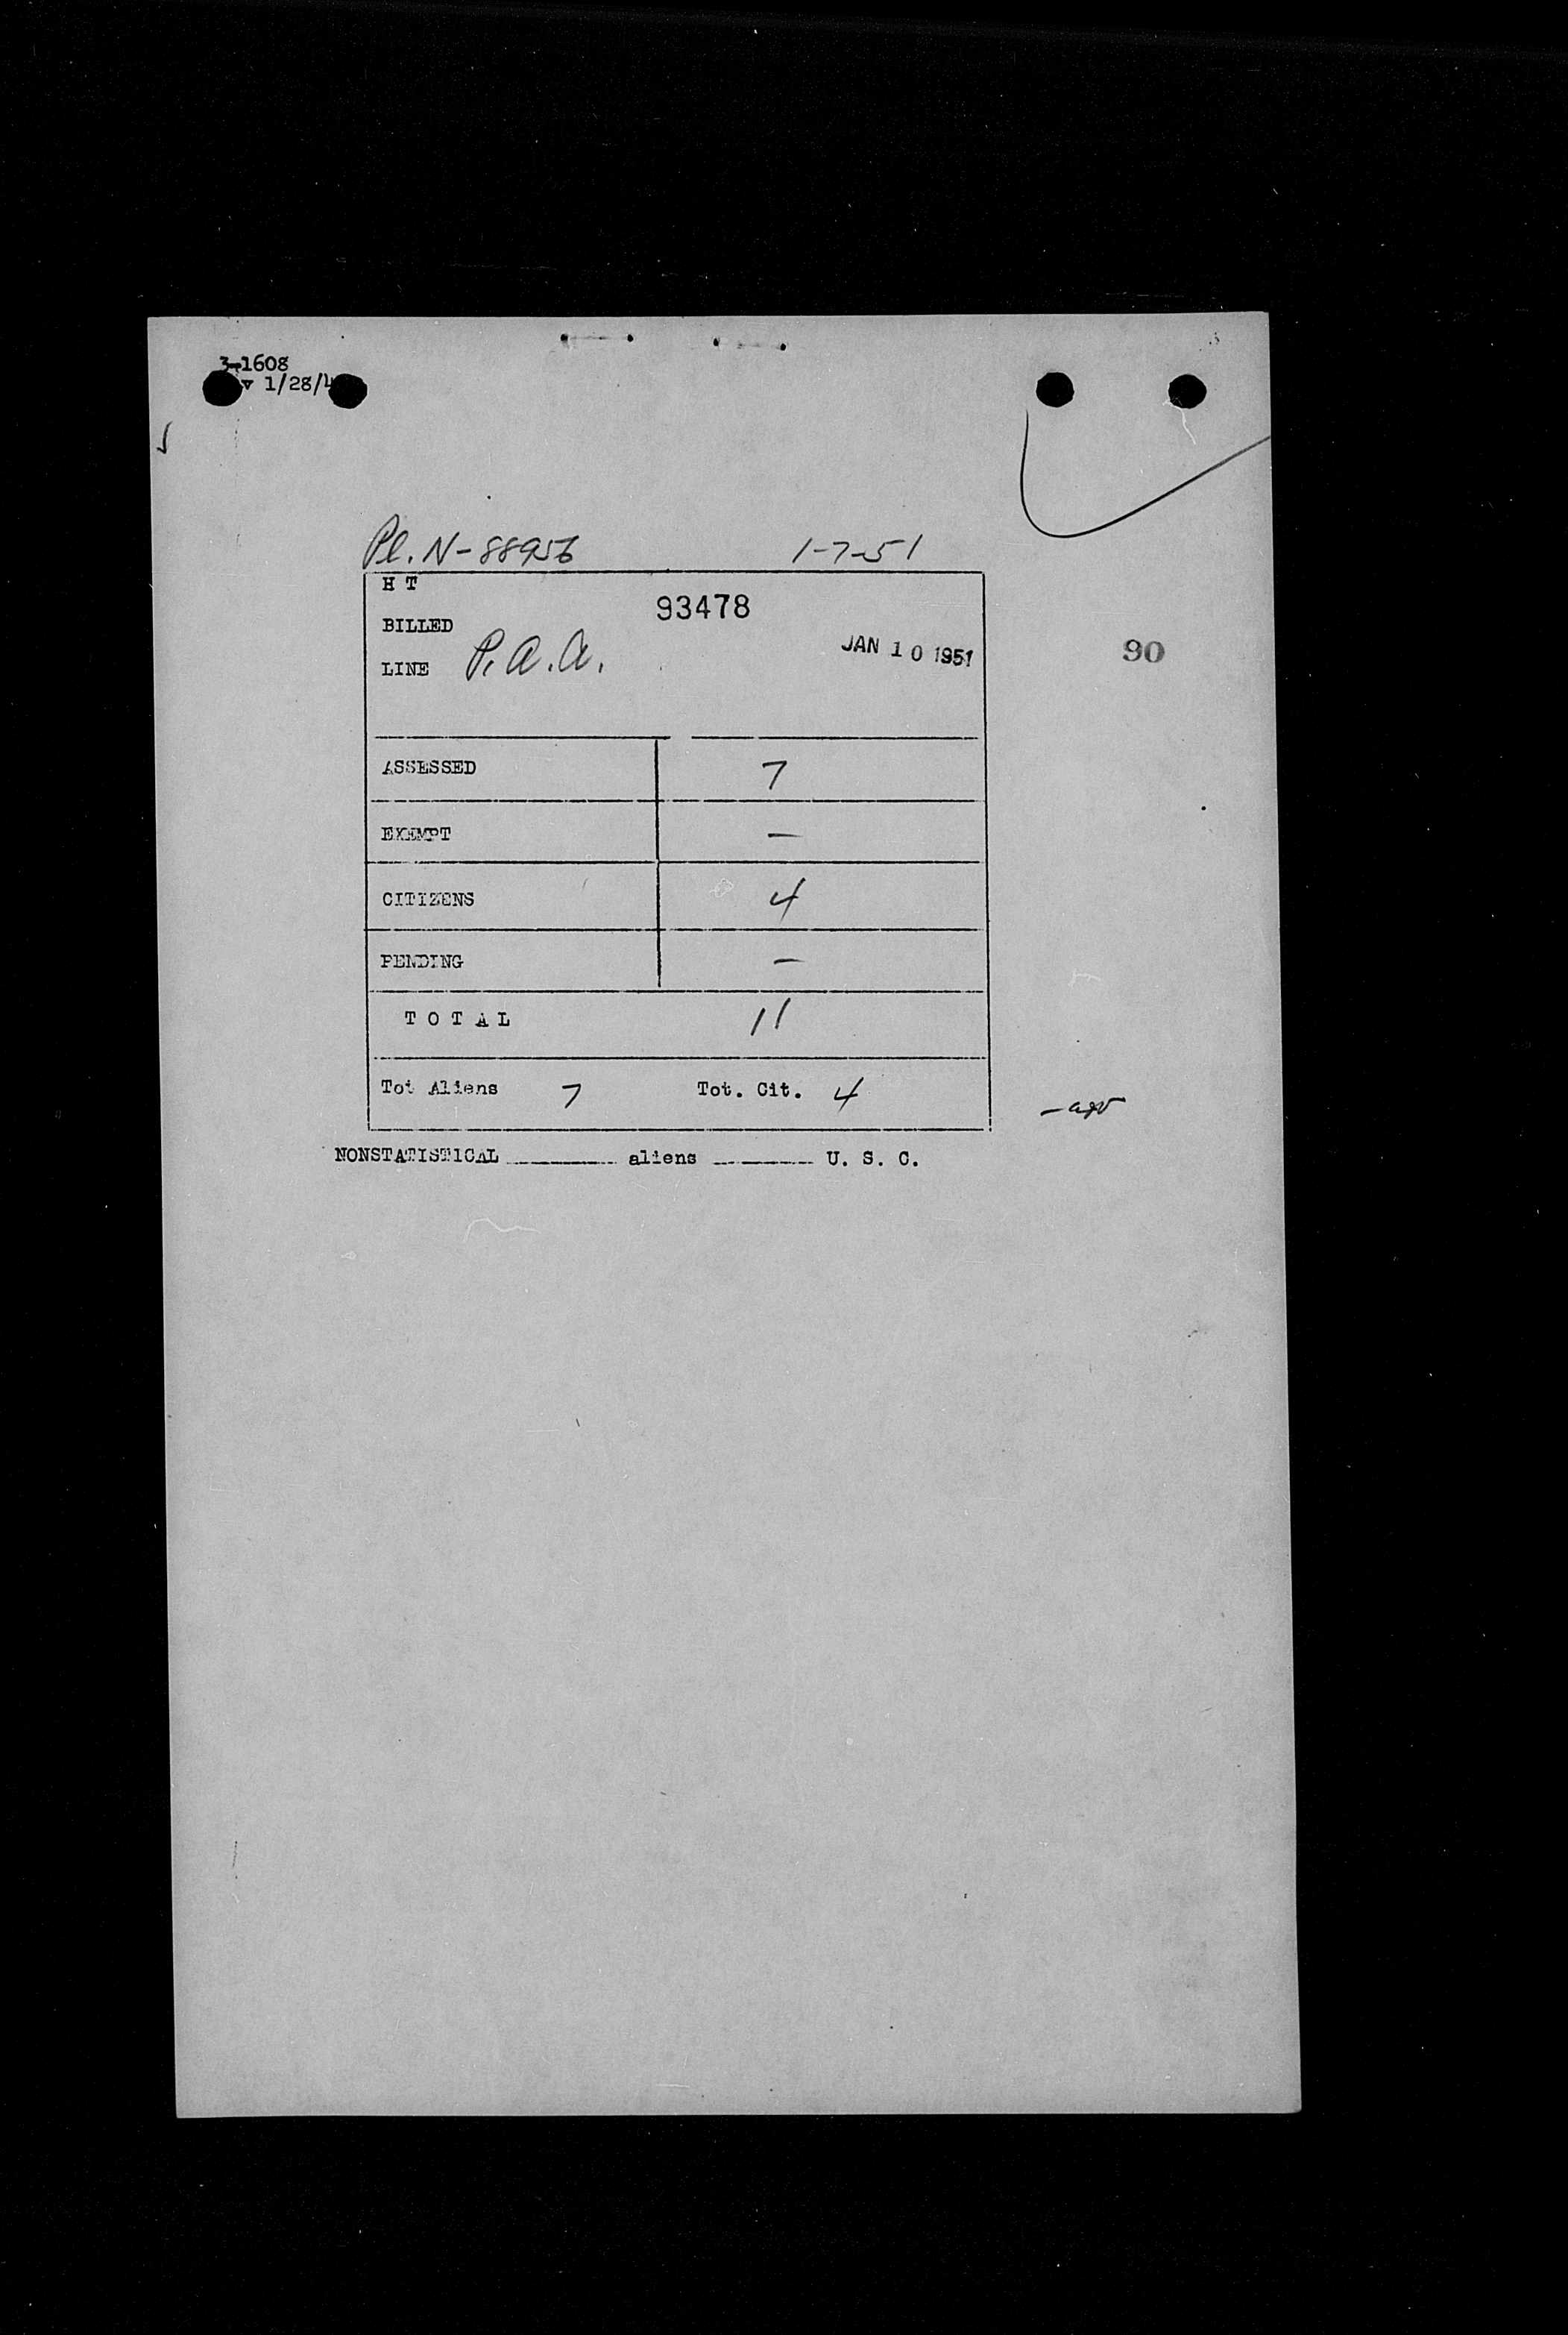 3-1608
1/28/4
Pl. N-88956 1-7-51
H T
93478
BILLED
JAN 10 1951
90
LINE P.A.A.
ASSESSED 7
EXEMPT —
CITIZENS 4
PENDING —
TOTAL 11
Tot Aliens 7 Tot. Cit. 4
NONSTATISTICAL ________ aliens ________ U. S. C.